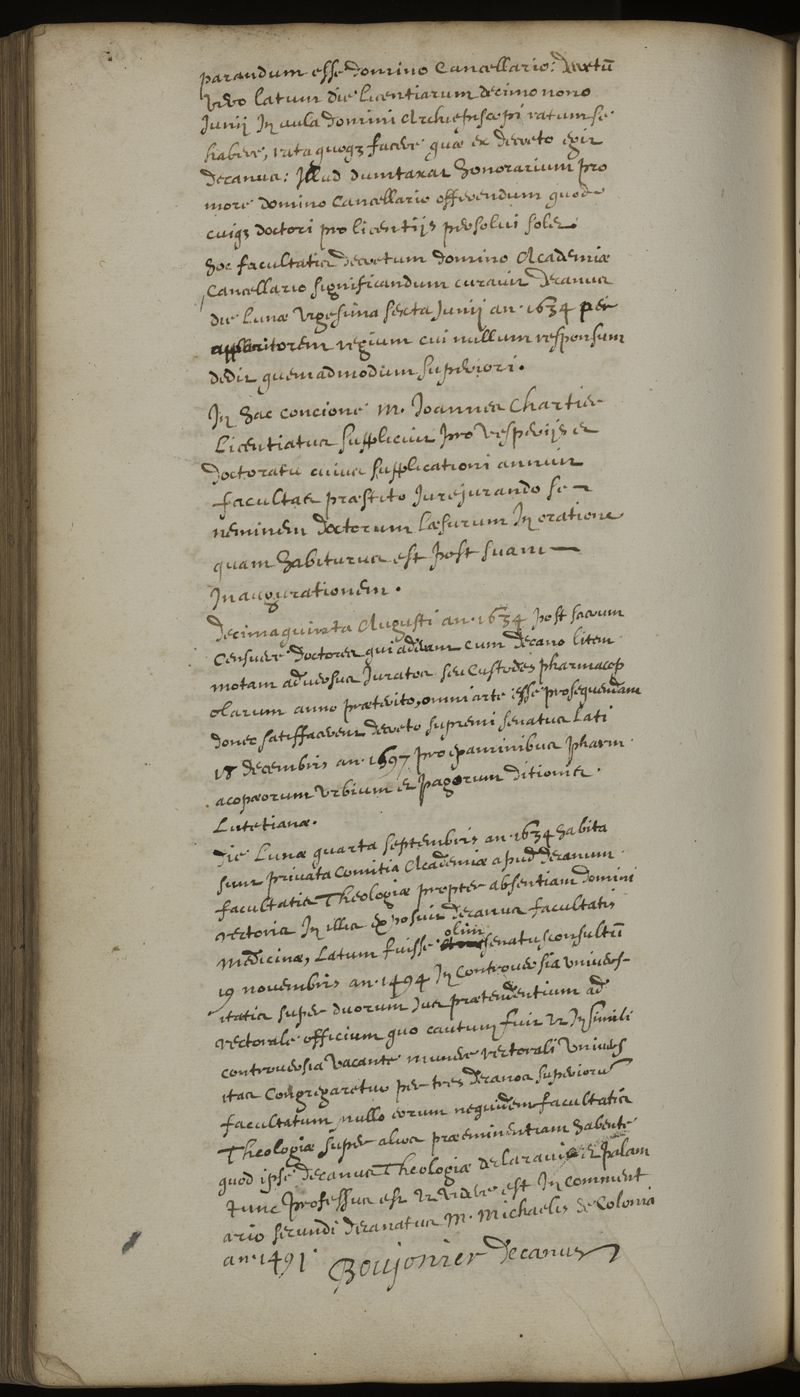 parandum esse domino Cancellario: decretū
vero latum die licentiarum decimo nono
Junij In aula domini Archiepiscopi ratum se
habere, rata quoqꝫ facere quæ ex decreto egit
decanus: Illud dumtaxat honorarium pro
more domino Cancellario offerendum quod
cuiqꝫ doctori pro licentijs persolui solet.
hoc facultatis decretum domino Academiæ
Cancellario significandum curauit decanus
die lunæ vigesima sexta Junij an. 1634 per
apparitorem regium cui nullum responsum
dedit quemadmodum superiori.
In hac concione M. Joannes Chartier
Licentiatus supplicuit pro vesperijs et
doctoratu cuius supplicationi annuit
facultas præstito Jurejurando se
neminem doctorum læsurum In oratione
quam habiturus est post suam
Inaugurationem.
Decimaquinta Augusti an. 1634 post sacrum
Censuere doctores qui aderant cum decano litem
motam aduersus Juratos seu Custodes pharmacop
olarum anno præterito, omni arte esse prosequendam
donec satisfacerent decreto supremi senatus lati
18 decembris an. 1597 pro examinibus pharm
acopæorum vrbium et pagorum ditionis
Lutetianæ.
Die Lunæ quarta septembris an. 1634 habita
sunt privata Comitia Academiæ apud decanum
facultatis Theologiæ propter absentiam domini
rectoris In illis exposuit decanus facultatis
Medicinæ, Latum fuisse olim senatusconsultū
19 nouembris an. 1494 In controuersia vniuers-
itatis super duorum Jus prætendentium ad
rectorale officium quo cautum fuit vt In simili
controuersia vacante munere rectorali vnivers
itas Congregaretur per tres decanos superiorū
facultatum nullo eorum nequidem facultatis
Theologiæ super alios præeminentiam habente
quod ipse decanus Theologiæ declarauit et palam
tunc professus est vt videre est In comment
ario secundi decanatus M. Michaelis de Colonia
an. 1491.
Boujonier decanus